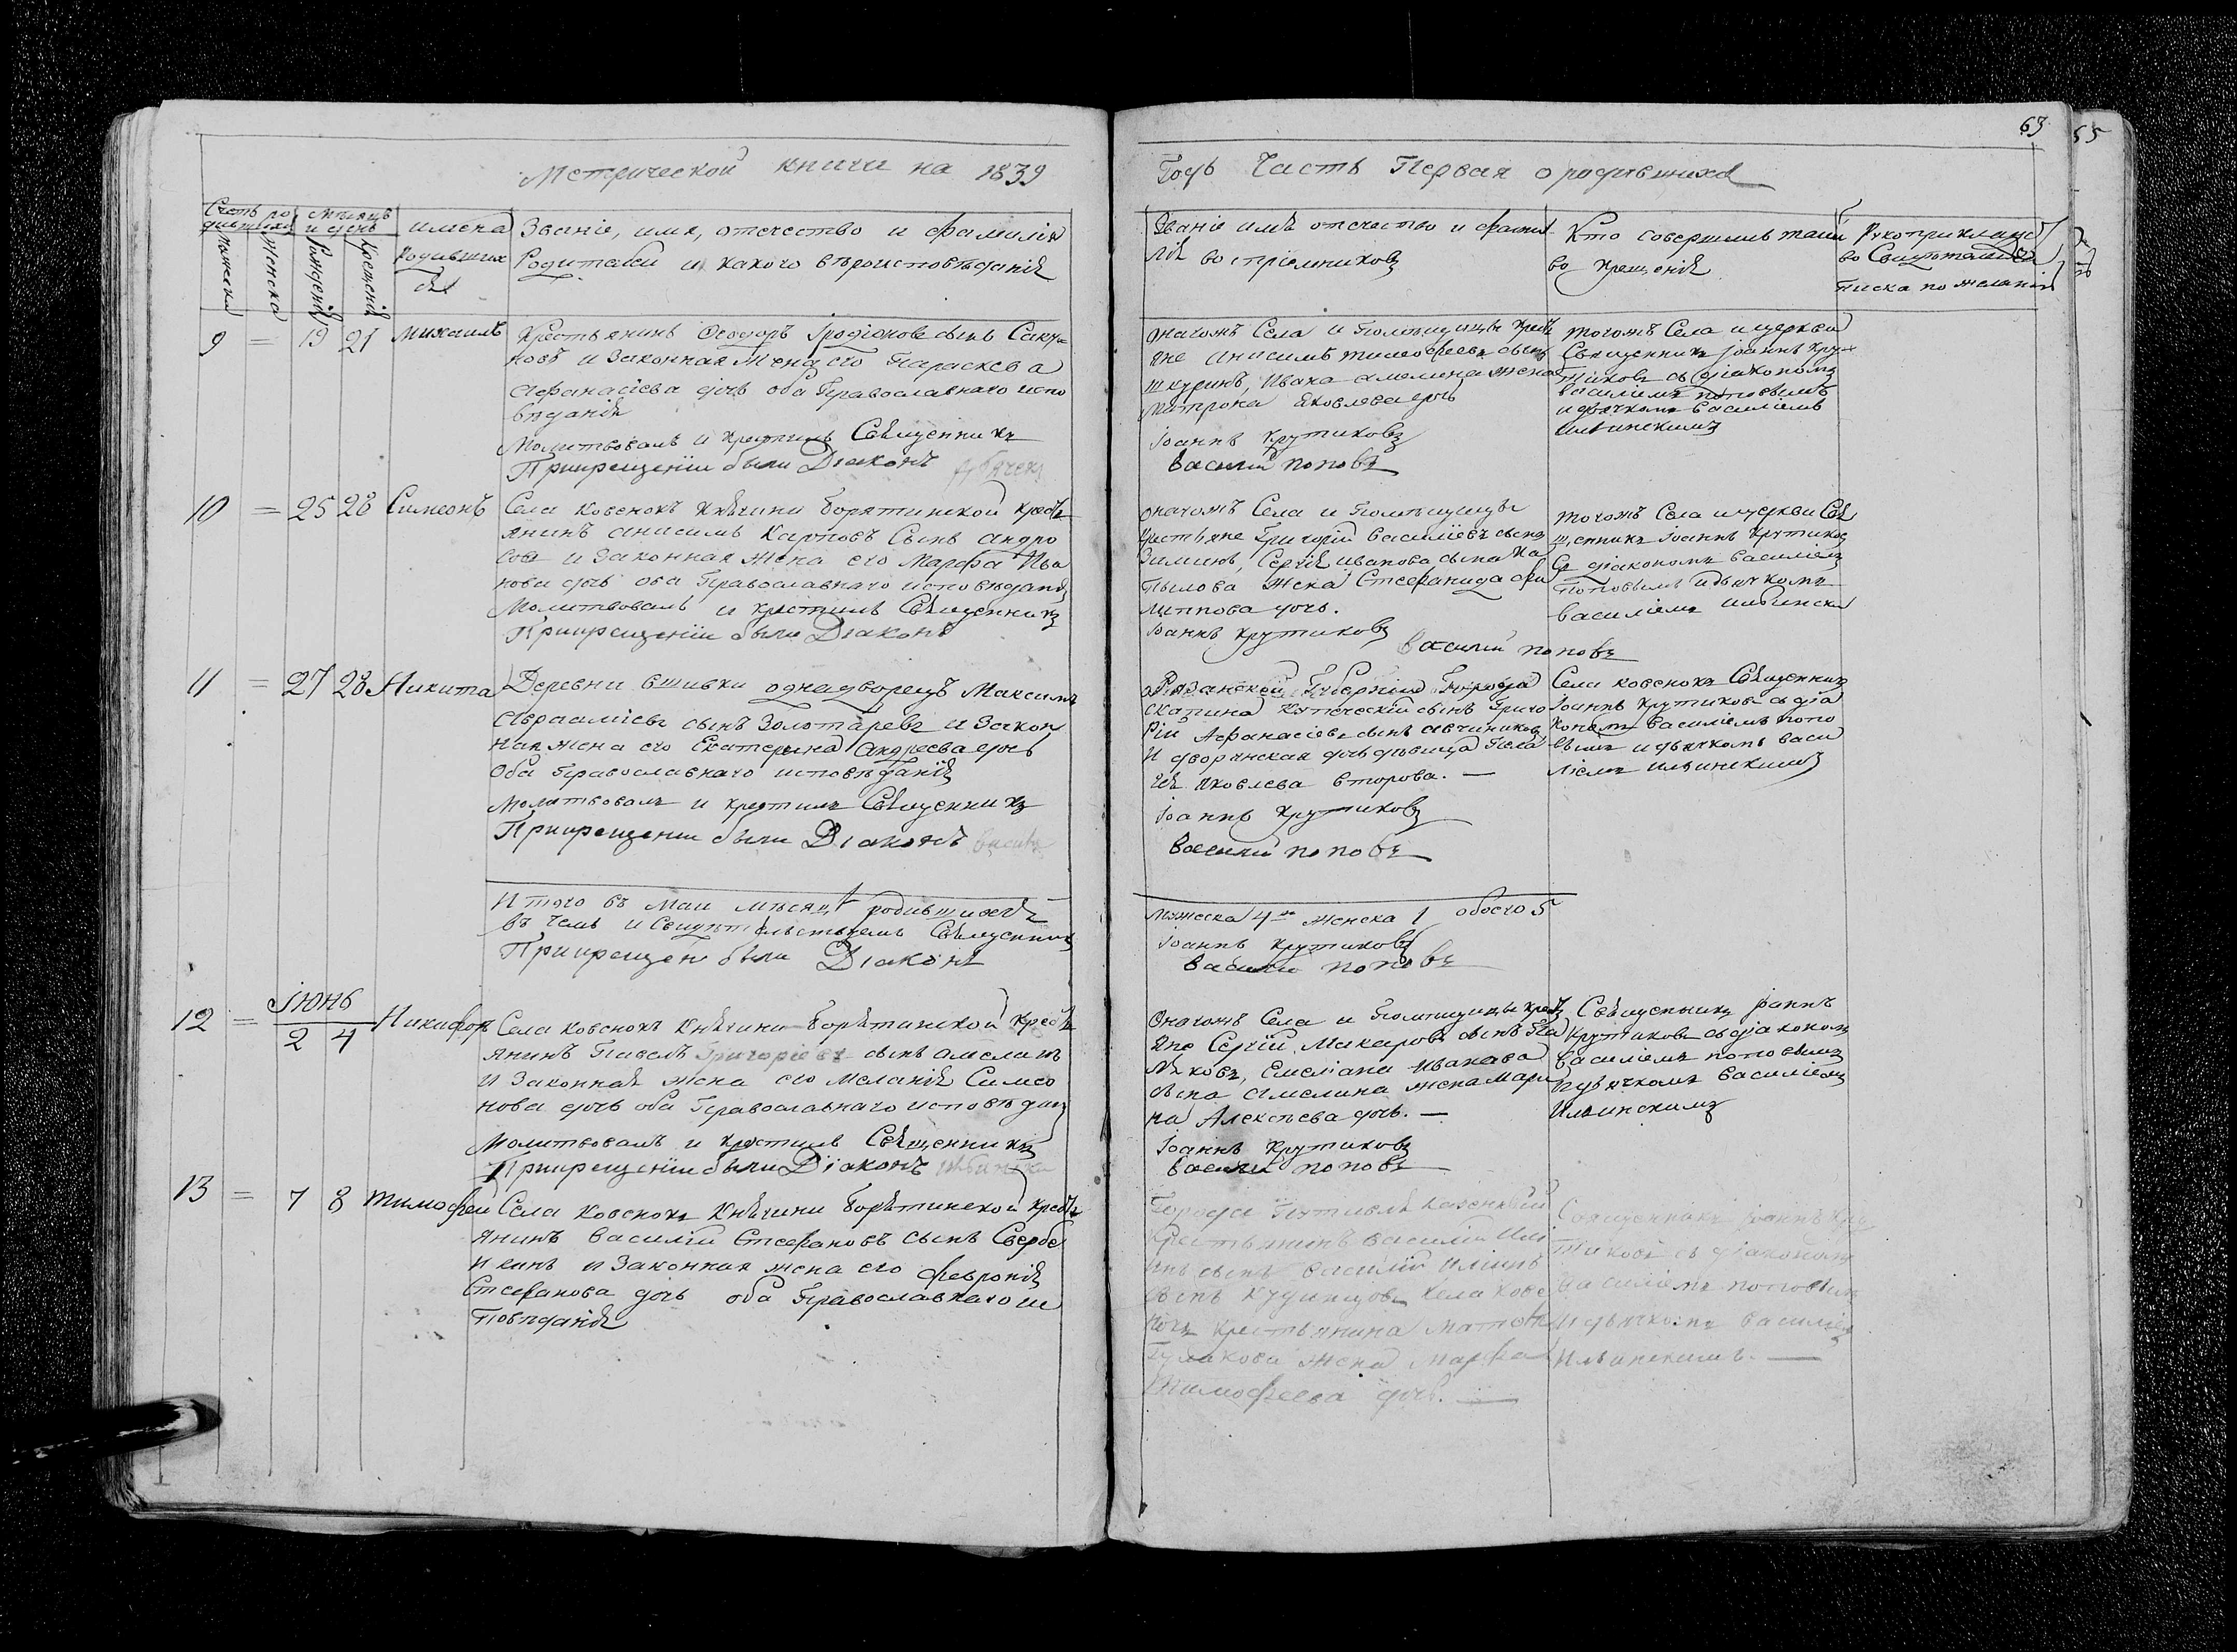 63
55
Метрической книги на 1839
Годъ Часть Первая о родившихся
Счетъ ро
дившихся
Мужеска
Женска
Месяцъ
и день
Рожденія
Крещенія
имена
Родивших
ся
Званіе, имя, отечество и фамилія
Родителей и какого вѣроисповѣданія
Званіе имя отечество и фами
лія воспріемниковъ
Кто совершилъ таин
во крещенія
Рукоприкладс
во Свидѣтелей
писка по желанію
9 = 19 21 Михаилъ
Крестьянинъ Ѳеодоръ Іродіоновъ сынъ Саку=
новъ и Законная Жена его Параскева
Афанасіева дочь оба Православнаго испо
вѣданія
Молитвовалъ и крестилъ Священникъ
Прикрещеніи были Діаконъ
оначожъ Села и Помѣщицы крестъ
яне Анисимъ тимофеевъ сынъ
шкуринъ, Ивана амелина жена
Матрона Яковлева дочь
Іоаннъ Крутиковъ
Василій поповъ
тогожъ Села и церкви
Священникъ Іоаннъ Кру=
тиковъ съ діакономъ
василіемъ поповымъ
и дьячкомъ василіемъ
ильинскимъ
10 = 25 28 Симеонъ
Села ковенокъ Княгини Борятинской крестъ
янинъ анисимъ Карповъ Сынъ андро
совъ и Законная Жена его Марфа Ива
нова дочь оба Православнаго исповѣдані
Молитвовалъ и крестилъ Священникъ
Прикрещеніи были Діаконъ
оначожъ Села и Помѣщицы
крестьяне Григорій Василіевъ сынъ
Зиминъ, Сергія иванова сына Ка
пылова Жена Стефанида фи
липпова дочь.
Іоаннъ Крутиковъ
Василій поповъ
тогожъ Села и церкви Свя
щенникъ Іоаннъ Крутиков
Съ діакономъ василіемъ
поповымъ и дьячкомъ
василіемъ ильински
11 = 27 28 Никита
Деревни вшивки однадворецъ Максимъ
Авраамiевъ сынъ Золотаревъ и Закон
ная жена его Екатерина Андреева дочь
Оба Православнаго исповѣданія
Молитвовалъ и крестилъ Священникъ
Прикрещеніи были Діаконъ
Рязанской Губерніи Города
Скапина Купеческій сынъ Григо
рій Афанасіевъ сынъ овчиниковъ
И дворянская дочь дѣвица Пела
гея Яковлева вторova. —
Іоаннъ Крутиковъ
Василій поповъ
Села ковенокъ Священникъ
іоаннъ Крутиковъ съ діа
кономъ Василіемъ попо
вымъ и дьячкомъ васи
ліемъ ильинскимъ
Итого въ маи мѣсяцѣ родившихся
въ чемъ и Свидѣтельствуемъ Священникъ
Прикрещен были Діаконъ
мужеска 4 женска 1 обоего 5
Іоаннъ Крутиковъ
Василій поповъ
Іюнь
12 = 2 4 Никифоръ
Села ковенокъ Княгини Борятинской крестъ
янинъ Павелъ Григоріевъ сынъ амелинъ
и Законная жена его Меланія Симео
нова дочь оба Православнаго исповѣдан
Молитвовалъ и крестилъ Священникъ
Прикрещеніи были Діаконъ
Оначожъ Села и Помѣщицы крестъ
яне Сергій Макаровъ сынъ По
ляковъ, Емеліана Иванова
сына Амелина жена Мари
на Алексѣева дочь. —
Іоаннъ Крутиковъ
Василій поповъ
Священникъ Іоаннъ
Крутиковъ съ діакономъ
василіемъ поповымъ
и дьячкомъ василіемъ
Ильинскимъ
13 = 7 8 тимофей
Села Ковенокъ Княгини Борятинской крестъ
янинъ василій Стефановъ сынъ
и Законная жена его Февронія
Стефанова дочь оба Православнаго ис
повѣданія
Города Путивля казенный
Крестьянинъ василій Иль
инъ сынъ василій ильинъ
сынъ Кудинцовъ Села Кове
нокъ Крестьянина
Гулакова жена Марфа
Тимофеева дочь. —
Священникъ Іоаннъ Кру
тиковъ съ діакономъ
василіемъ поповым
и дьячкомъ василіем
Ильинскимъ. —